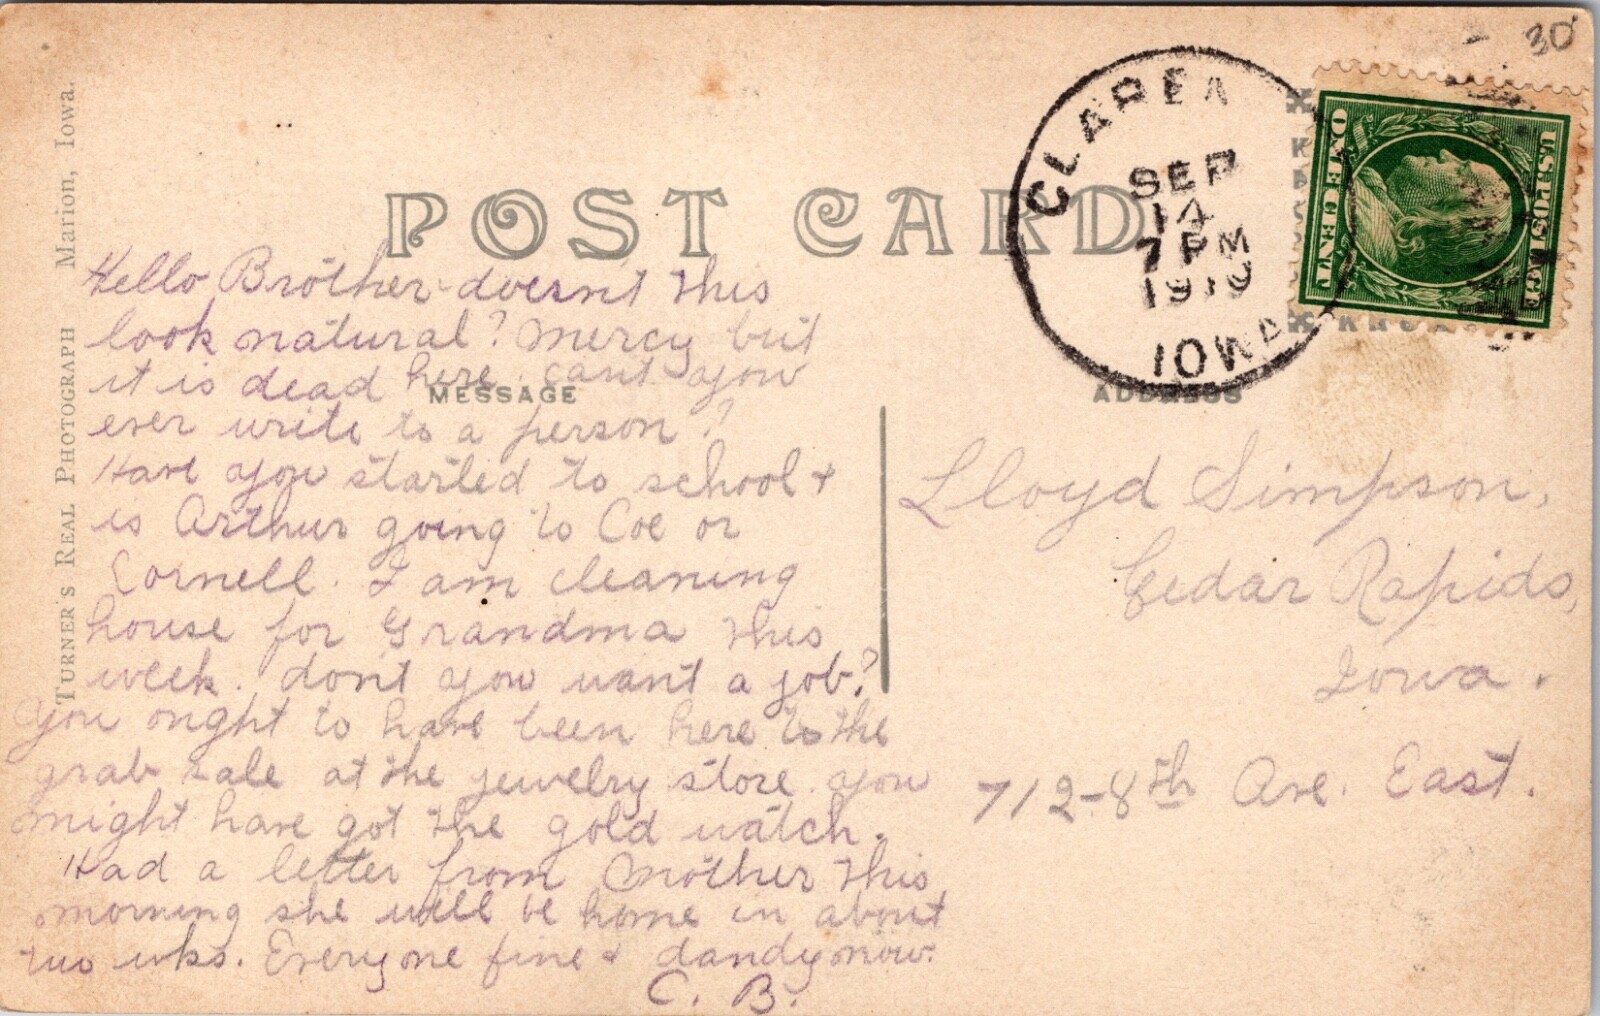 30
TURNER'S REAL PHOTOGRAPH Marion, Iowa.
POST CARD
CLARE
SEP
14
7 PM
1910
IOWA
U.S. POSTAGE
ONE CENT
MESSAGE
ADDRESS
Hello Brother doesn't this
look natural? Mercy but
it is dead here. can't you
ever write to a person?
Have you started to school +
is Arthur going to Coe or
Cornell. I am cleaning
house for Grandma this
week. don't you want a job?
You ought to have been here to the
grab sale at the jewelry store. you
might have got the gold watch.
Had a letter from Mother this
morning she will be home in about
two wks. Everyone fine + dandy now.
C. B.
Lloyd Simpson,
Cedar Rapids,
Iowa.
712-8th Ave. East.